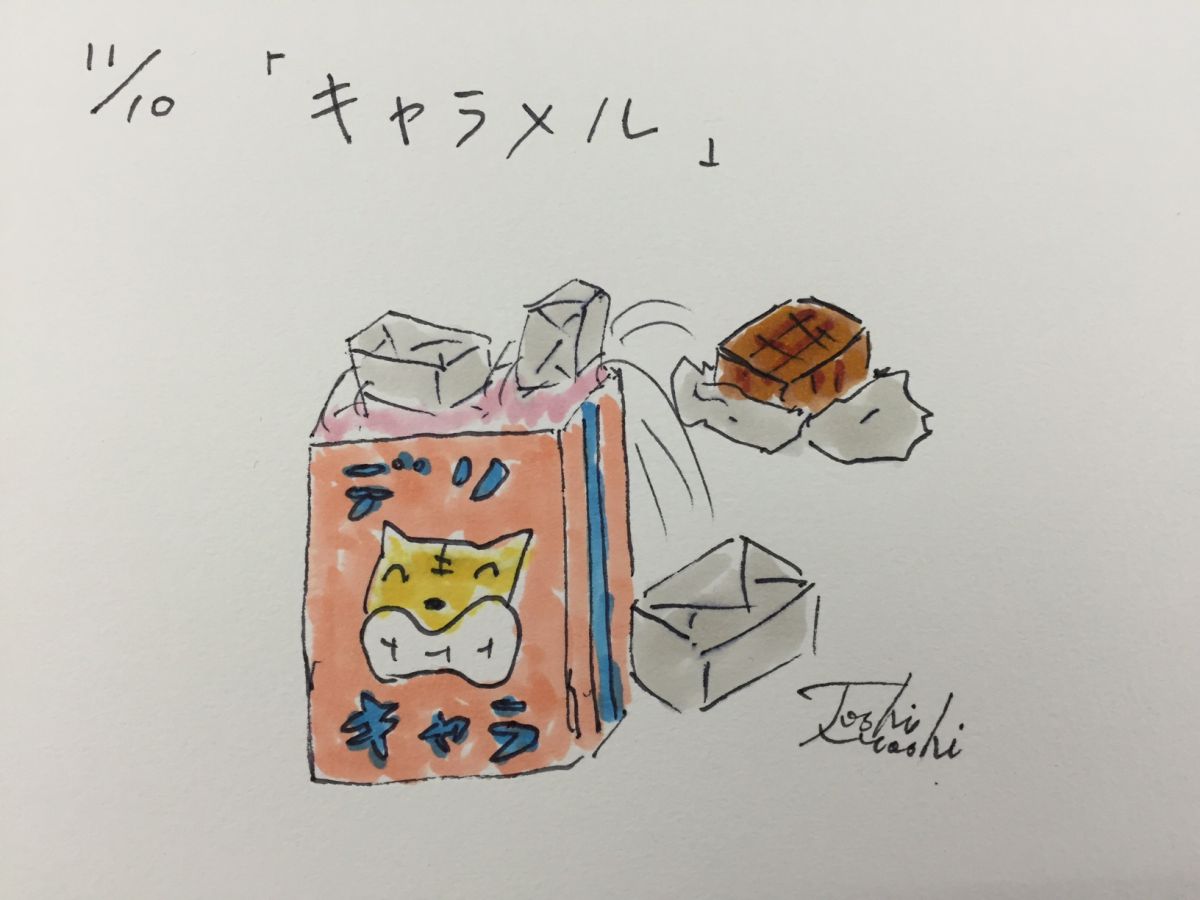 11/10 「キャラメル」
デリ
キャラ
Toshi